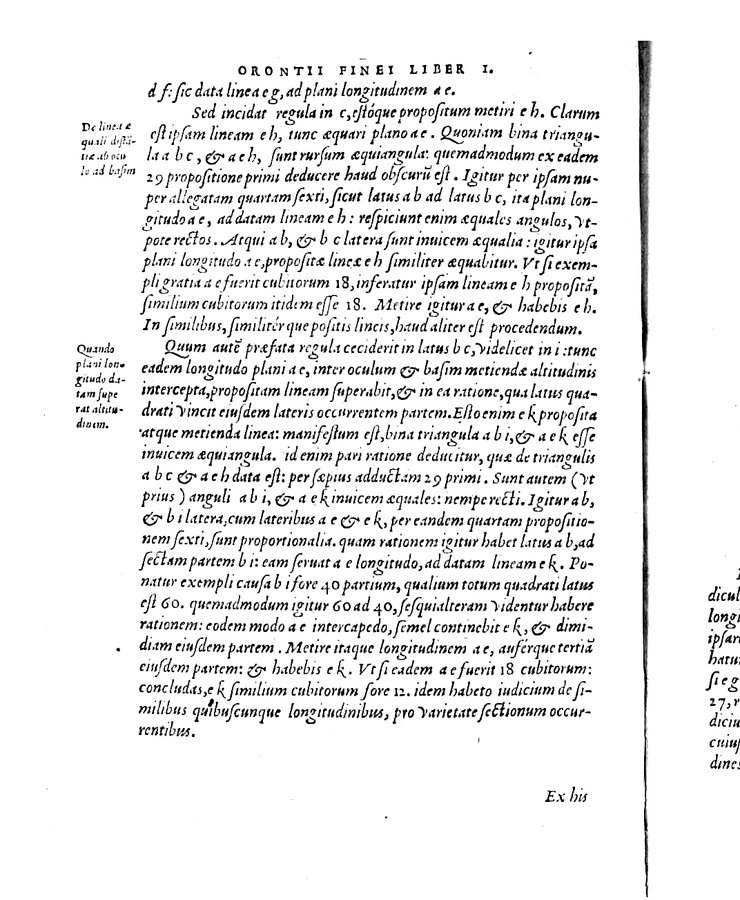 ORONTII FINEI LIBER I.
d f: sic data linea e g, ad plani longitudinem a e.
De linea æ
quali distā-
tiæ ab ocu
lo ad basim
Sed incidat regula in c, estóque propositum metiri e h. Clarum
est ipsam lineam e h, tunc æquari plano a e. Quoniam bina triangu-
la a b c, & a e h, sunt rursum æquiangula: quemadmodum ex eadem
29 propositione primi deducere haud obscurū est. Igitur per ipsam nu-
per allegatam quartam sexti, sicut latus a b ad latus b c, ita plani lon-
gitudo a e, ad datam lineam e h: respiciunt enim æquales angulos, vt-
pote rectos. Atqui a b, & b c latera sunt inuicem æqualia: igitur ipsa
plani longitudo a e, propositæ lineæ e h similiter æquabitur. Vt si exem-
pli gratia a e fuerit cubitorum 18, inferatur ipsam lineam e h propositā,
similium cubitorum itidem esse 18. Metire igitur a e, & habebis e h.
In similibus, similitérque positis lincis, haud aliter est procedendum.
Quando
plani lon-
gitudo da-
tam supe
rat altitu-
dinem.
Quum autē præfata regula ceciderit in latus b c, videlicet in i: tunc
eadem longitudo plani a e, inter oculum & basim metiendæ altitudinis
intercepta, propositam lineam superabit, & in ea ratione, qua latus qua-
drati vincit eiusdem lateris occurrentem partem. Esto enim e k proposita
atque metienda linea: manifestum est, bina triangula a b i, & a e k esse
inuicem æquiangula. id enim pari ratione deducitur, quæ de triangulis
a b c & a e h data est: per sæpius adductam 29 primi. Sunt autem (vt
prius) anguli a b i, & a e k inuicem æquales: nempe recti. Igitur a b,
& b i latera, cum lateribus a e & e k, per eandem quartam propositio-
nem sexti, sunt proportionalia. quam rationem igitur habet latus a b, ad
sectam partem b i: eam seruat a e longitudo, ad datam lineam e k. Po-
natur exempli causa b i fore 40 partium, qualium totum quadrati latus
est 60. quemadmodum igitur 60 ad 40, sesquialteram videntur habere
rationem: eodem modo a e intercapedo, semel continebit e k, & dimi-
diam eiusdem partem. Metire itaque longitudinem a e, auférque tertiā
eiusdem partem: & habebis e k. Vt si eadem a e fuerit 18 cubitorum:
concludas, e k similium cubitorum fore 12. idem habeto iudicium de si-
milibus quibuscunque longitudinibus, pro varietate sectionum occur-
rentibus.
Ex his
dicul
longi
ipsar
hatu
si e g
27, r
diciu
cuius
dines